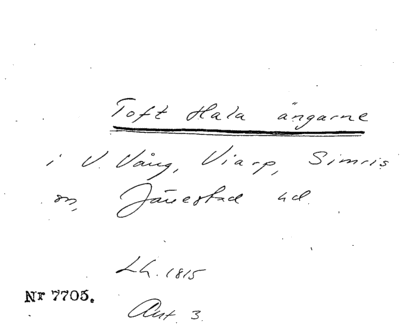 Toft Hala ängarne
i V. Vång, Viarp, Simris
sn, Järrestad hd.
Lh. 1815
Nr 7705.
Ant. 3.